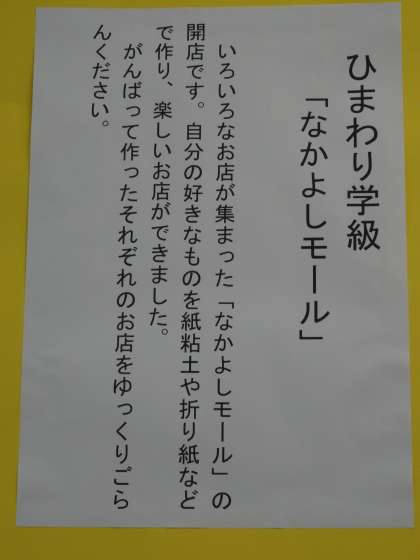 ひまわり学級
「なかよしモール」
いろいろなお店が集まった「なかよしモール」の
開店です。自分の好きなものを紙粘土や折り紙など
で作り、楽しいお店ができました。
がんばって作ったそれぞれのお店をゆっくりごら
んください。